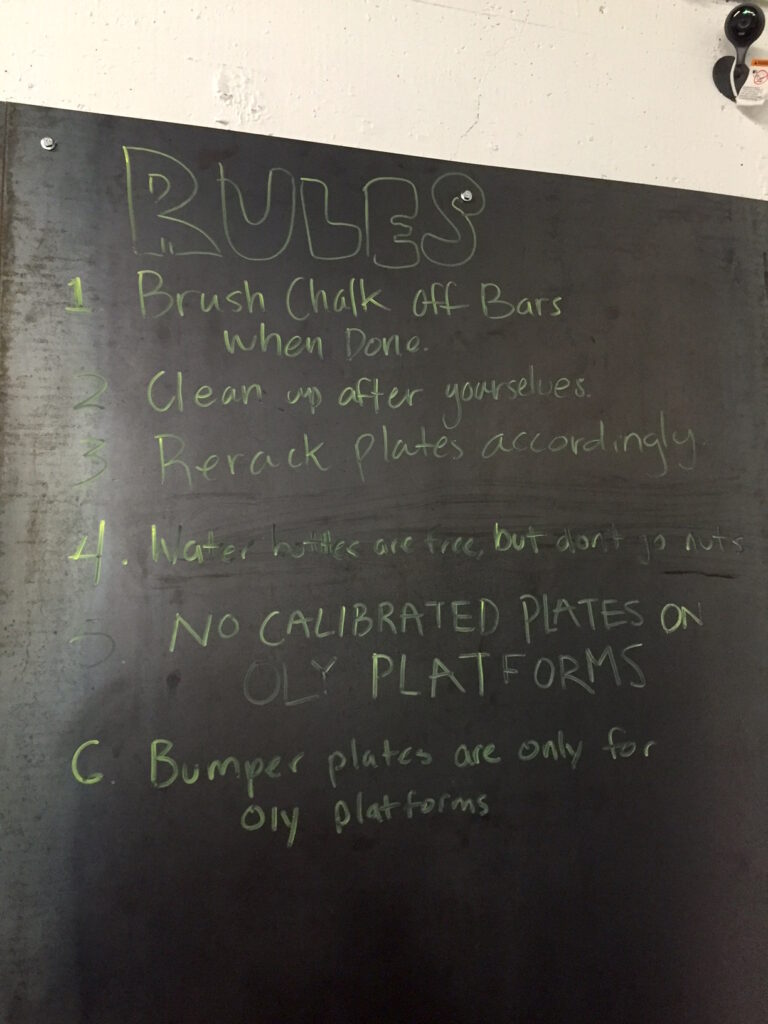 RULES
1 Brush Chalk off Bars
when Done.
2 Clean up after yourselves.
3 Rerack Plates accordingly.
4. Water bottles are free, but don't go nuts
5. NO CALIBRATED PLATES ON
OLY PLATFORMS
6. Bumper plates are only for
Oly platforms